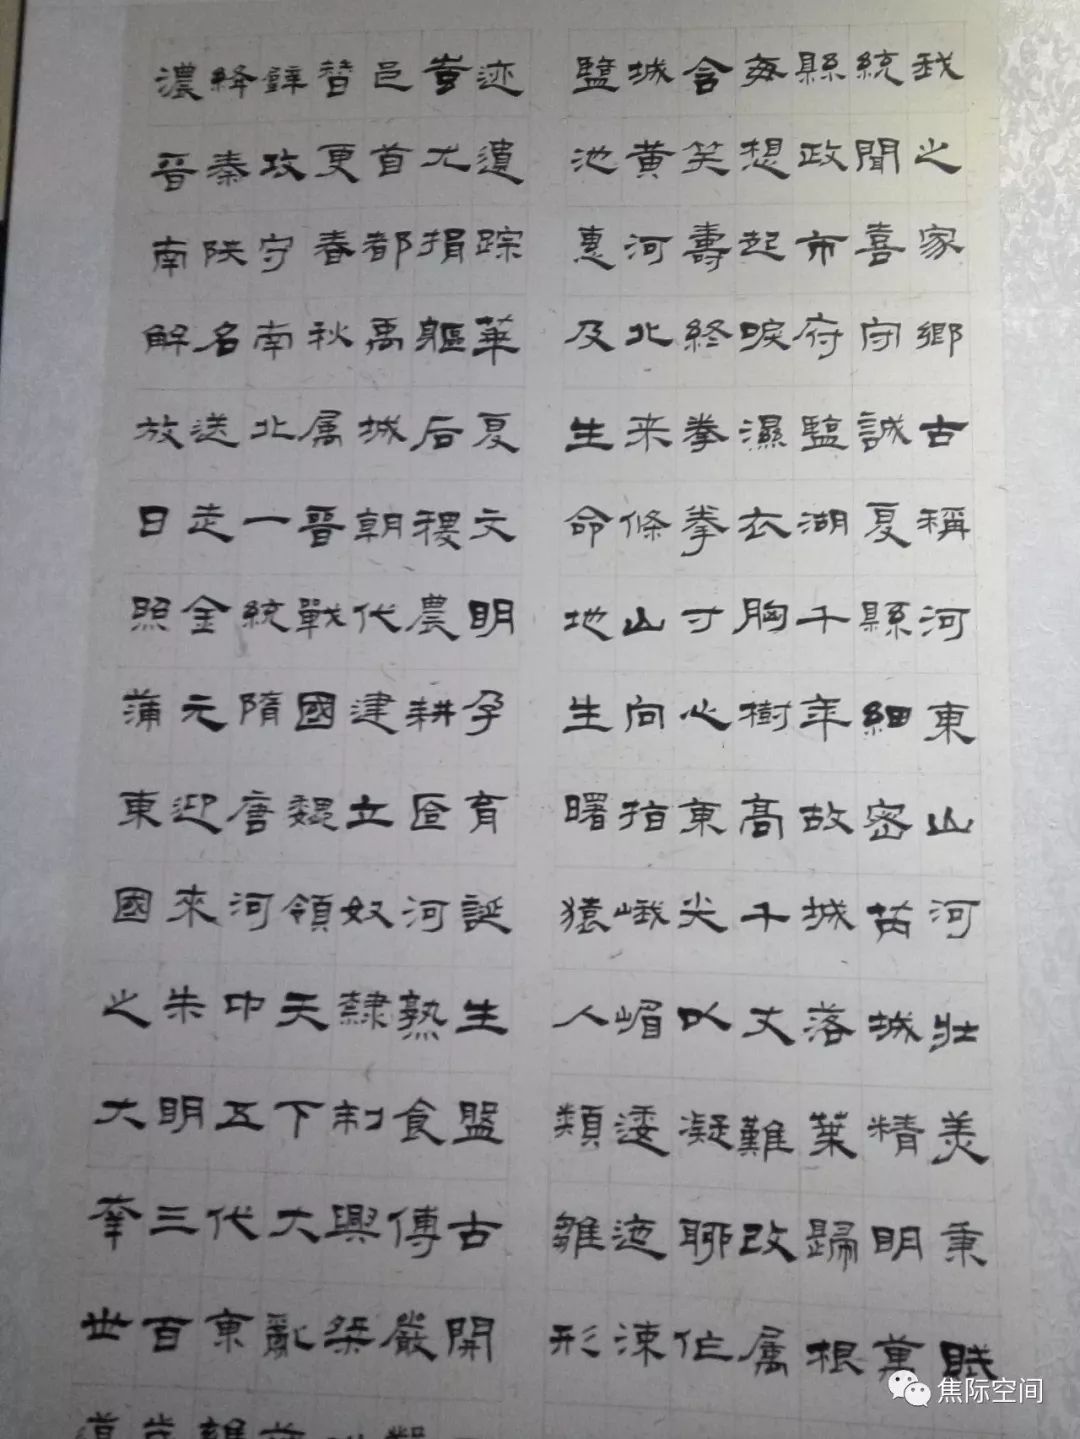 我之家鄉古稱河東山河壯美秉賦
統聞喜守誠夏縣細密芮城精明萬
縣政市府鹽湖千年故城落葉歸根
每想起淚濕衣胸樹高千丈難改属
含笑壽終拳拳寸心東尖以凝聊作
城黄河北来條山向指峨嵋逶迤涑
鹽池惠及生命地生曙猿人類雛形
迹遺踪華夏文明孕育誕生盟古開
蚩尤捐軀后稷農耕匼河熟食傳嚴
邑首都禹城朝代建立奴隸制興桀
替更春秋属晉戰國魏領天下大亂
攻守南北一統隋唐河中五代東
絳秦陕名送走金元迎來朱明三百
濃晉南解放日照蒲東國之大率世
焦际空间